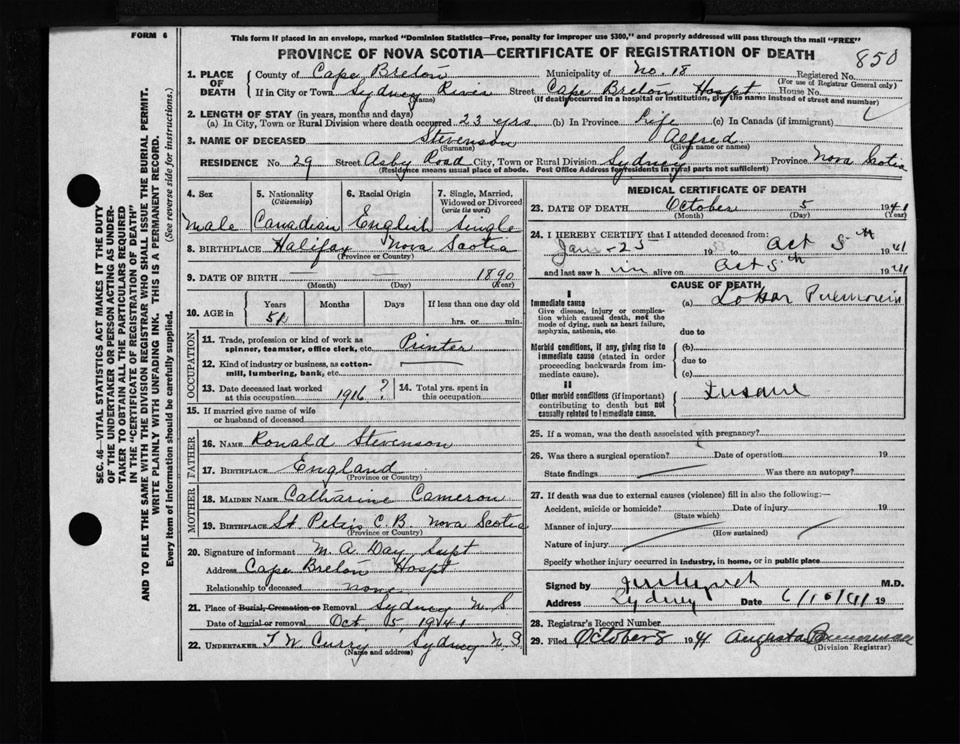 FORM 6
This form if placed in an envelope, marked "Dominion Statistics—Free, penalty for improper use $300," and properly addressed will pass through the mail "FREE"
PROVINCE OF NOVA SCOTIA—CERTIFICATE OF REGISTRATION OF DEATH
850
1. PLACE OF DEATH
County of Cape Breton Municipality of No. 18 Registered No.
(For use of Registrar General only)
If in City or Town Sydney River Street Cape Breton Hospt House No.
(Name) (If death occurred in a hospital or institution, give the name instead of street and number)
2. LENGTH OF STAY (in years, months and days)
(a) In City, Town or Rural Division where death occurred 23 yrs (b) In Province Life (c) In Canada (if immigrant)
3. NAME OF DECEASED Stevenson Alfred
(Surname) (Given name or names)
RESIDENCE No. 29 Street Asby Road City, Town or Rural Division Sydney Province Nova Scotia
(Residence means usual place of abode. Post Office Address for residents in rural parts not sufficient)
4. Sex
male
5. Nationality
(Citizenship)
Canadian
6. Racial Origin
English
7. Single, Married, Widowed or Divorced
(write the word)
single
8. BIRTHPLACE Halifax Nova Scotia
(Province or Country)
9. DATE OF BIRTH — — 1890
(Month) (Day) (Year)
10. AGE in
Years Months Days If less than one day
51 hrs. or min.
OCCUPATION
11. Trade, profession or kind of work as spinner, teamster, office clerk, etc. Printer
12. Kind of industry or business, as cotton-mill, lumbering, bank, etc.
13. Date deceased last worked at this occupation 1916 ?
14. Total yrs. spent in this occupation
15. If married give name of wife or husband of deceased
FATHER
16. NAME Ronald Stevenson
17. BIRTHPLACE England
(Province or Country)
MOTHER
18. MAIDEN NAME Catharine Cameron
19. BIRTHPLACE St Peters C.B. Nova Scotia
(Province or Country)
20. Signature of informant M. A. Day Supt
Address Cape Breton Hospt
Relationship to deceased none
21. Place of Burial, Cremation or Removal Sydney N.S
Date of burial or removal Oct 5, 1941
22. UNDERTAKER T. W. Curry Sydney N.S
(Name and address)
MEDICAL CERTIFICATE OF DEATH
23. DATE OF DEATH October 5 1941
(Month) (Day) (Year)
24. I HEREBY CERTIFY that I attended deceased from:
Jan - 25 19 to Oct 5th 1941
and last saw him alive on Oct 5th 1941
CAUSE OF DEATH
I
Immediate cause
Give disease, injury or complication which caused death, not the mode of dying, such as heart failure, asphyxia, asthenia, etc.
(a) Lobar Pneumonia
due to
Morbid conditions, if any, giving rise to immediate cause (stated in order proceeding backwards from immediate cause).
(b)
due to
(c)
II
Other morbid conditions (if important) contributing to death but not causally related to immediate cause.
Insane
25. If a woman, was the death associated with pregnancy?
26. Was there a surgical operation? Date of operation 19
State findings Was there an autopsy?
27. If death was due to external causes (violence) fill in also the following:—
Accident, suicide or homicide? Date of injury 19
(State which)
Manner of injury
(How sustained)
Nature of injury
Specify whether injury occurred in industry, in home, or in public place
Signed by M.D.
Address Sydney Date 19
28. Registrar's Record Number
29. Filed October 8 194 Augusta
(Division Registrar)
SEC. 46—VITAL STATISTICS ACT MAKES IT THE DUTY
OF THE UNDERTAKER OR PERSON ACTING AS UNDER-
TAKER TO OBTAIN ALL THE PARTICULARS REQUIRED
IN THE "CERTIFICATE OF REGISTRATION OF DEATH"
AND TO FILE THE SAME WITH THE DIVISION REGISTRAR WHO SHALL ISSUE THE BURIAL PERMIT.
WRITE PLAINLY WITH UNFADING INK. THIS IS A PERMANENT RECORD.
Every item of information should be carefully supplied. (See reverse side for instructions.)